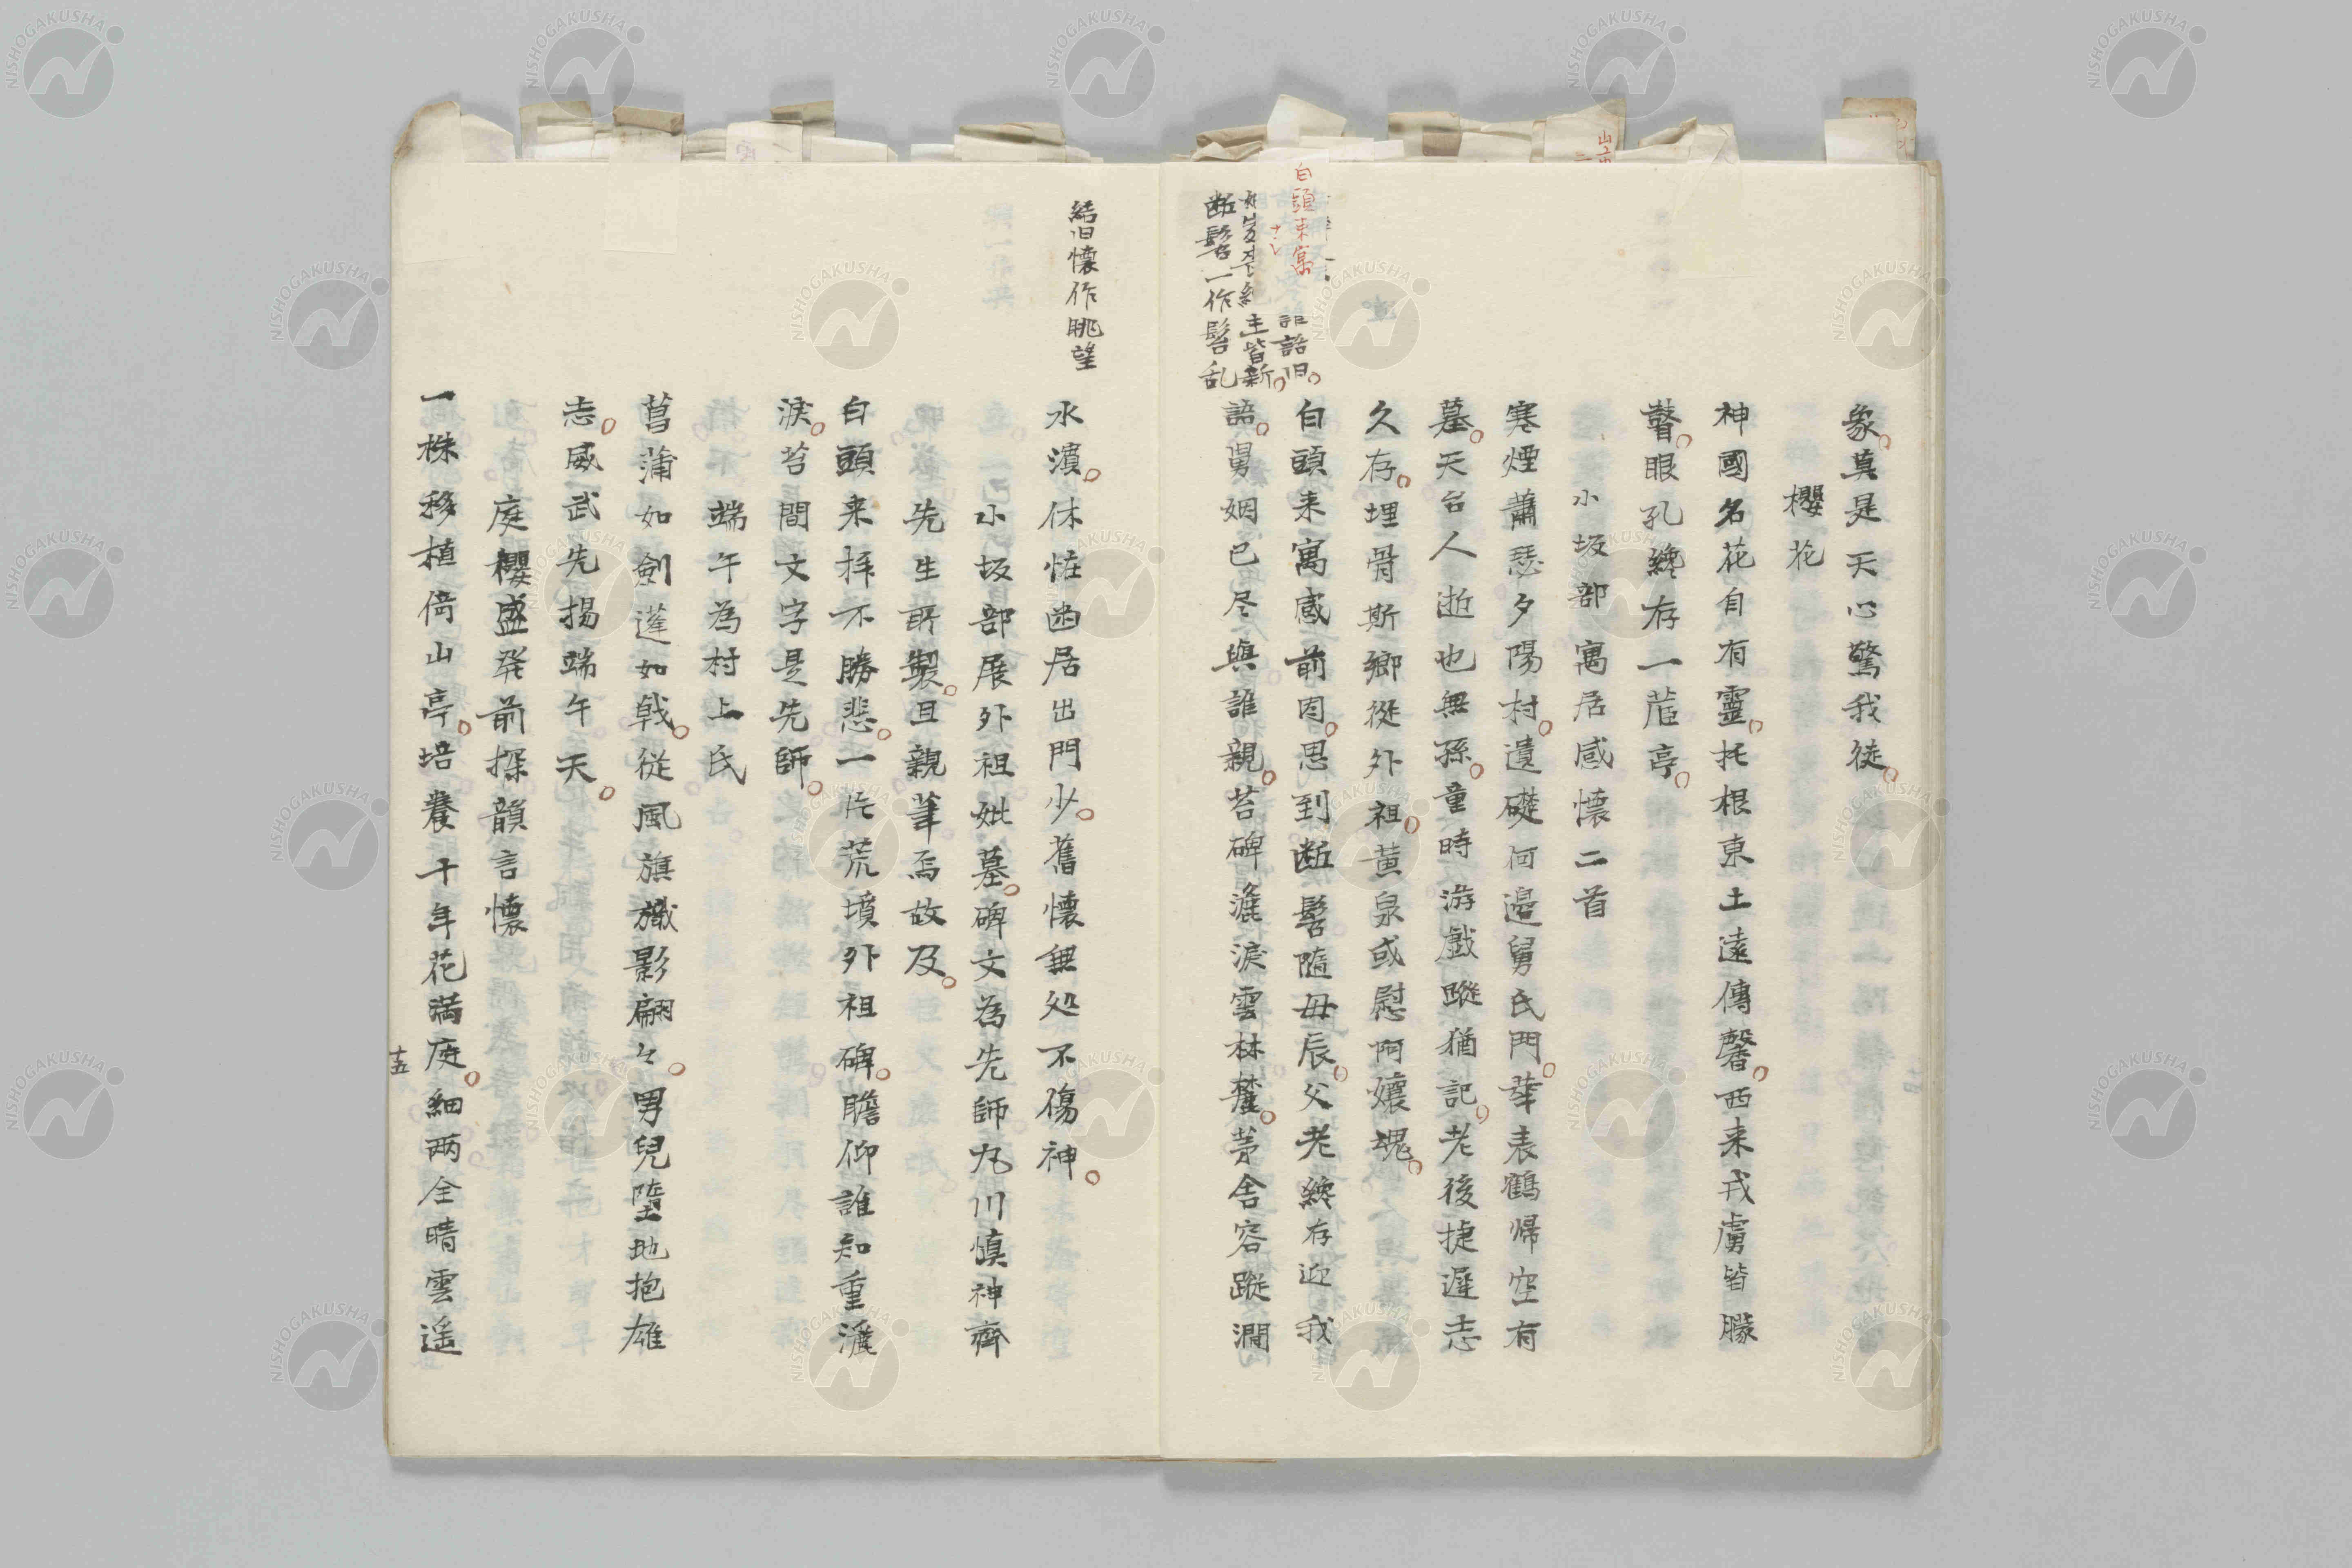 象真是天心驚我徒
櫻花
神國名花自有靈托根東土遠傳馨西来戎虜皆朦
瞽眼孔纔存一蓙亭
小坂部寓居感懐二首
寒煙蕭瑟夕陽村遺礎何邉舅氏門華表鶴帰空有
墓天台人逝也無孫童時游戲蹤猶記老後捷遲志
久存埋骨斯郷従外祖黄泉或慰阿孃魂
白頭来寓感前因思到断髫隨母辰父老纔存迎我
語舅姻已尽與誰親苔碑灑淚雲林麓茅舎容蹤澗
白頭来寓
語旧
主皆新
断髫一作髫乱
水濱休恠幽居出門少舊懐無処不傷神
結旧懐作眺望
小坂部展外祖妣墓碑文為先師丸川慎神齊
先生所製且親筆焉故及
白頭来拝不勝悲一片荒墳外祖碑瞻仰誰知重灑
淚苔間文字是先師
端午為村上氏
菖蒲如劍蓬如戟従風旗幟影翩々男兒墮地抱雄
志威武先揚端午天
庭櫻盛発前探韻言懐
一株移植倚山亭培養十年花満庭細両全晴雲遥
十五
NISHOGAKUSHA